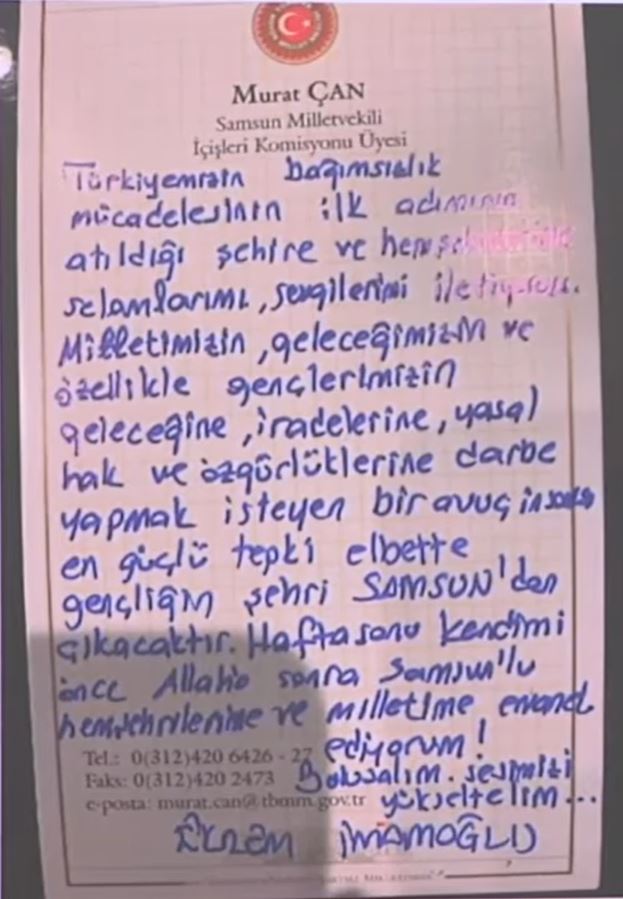 Murat ÇAN
Samsun Milletvekili
İçişleri Komisyonu Üyesi
Türkiyemizin bağımsızlık
mücadelesinin ilk adımının
atıldığı şehire ve
selamlarımı, sevgilerimi iletiyorum.
Milletimizin, geleceğimizin ve
özellikle gençlerimizin
geleceğine, iradelerine, yasal
hak ve özgürlüklerine darbe
yapmak isteyen bir avuç
en güçlü tepki elbette
gençliğin şehri SAMSUN'dan
çıkacaktır. Haftasonu kendimi
önce Allah'a sonra Samsun'lu
hemşehrilerime ve milletime emanet
ediyorum!
Tel.: 0(312)420 6426 - 27
Buluşalım. sesimizi
Faks: 0(312)420 2473
e-posta: murat.can@tbmm.gov.tr
yükseltelim...
EKREM İMAMOĞLU